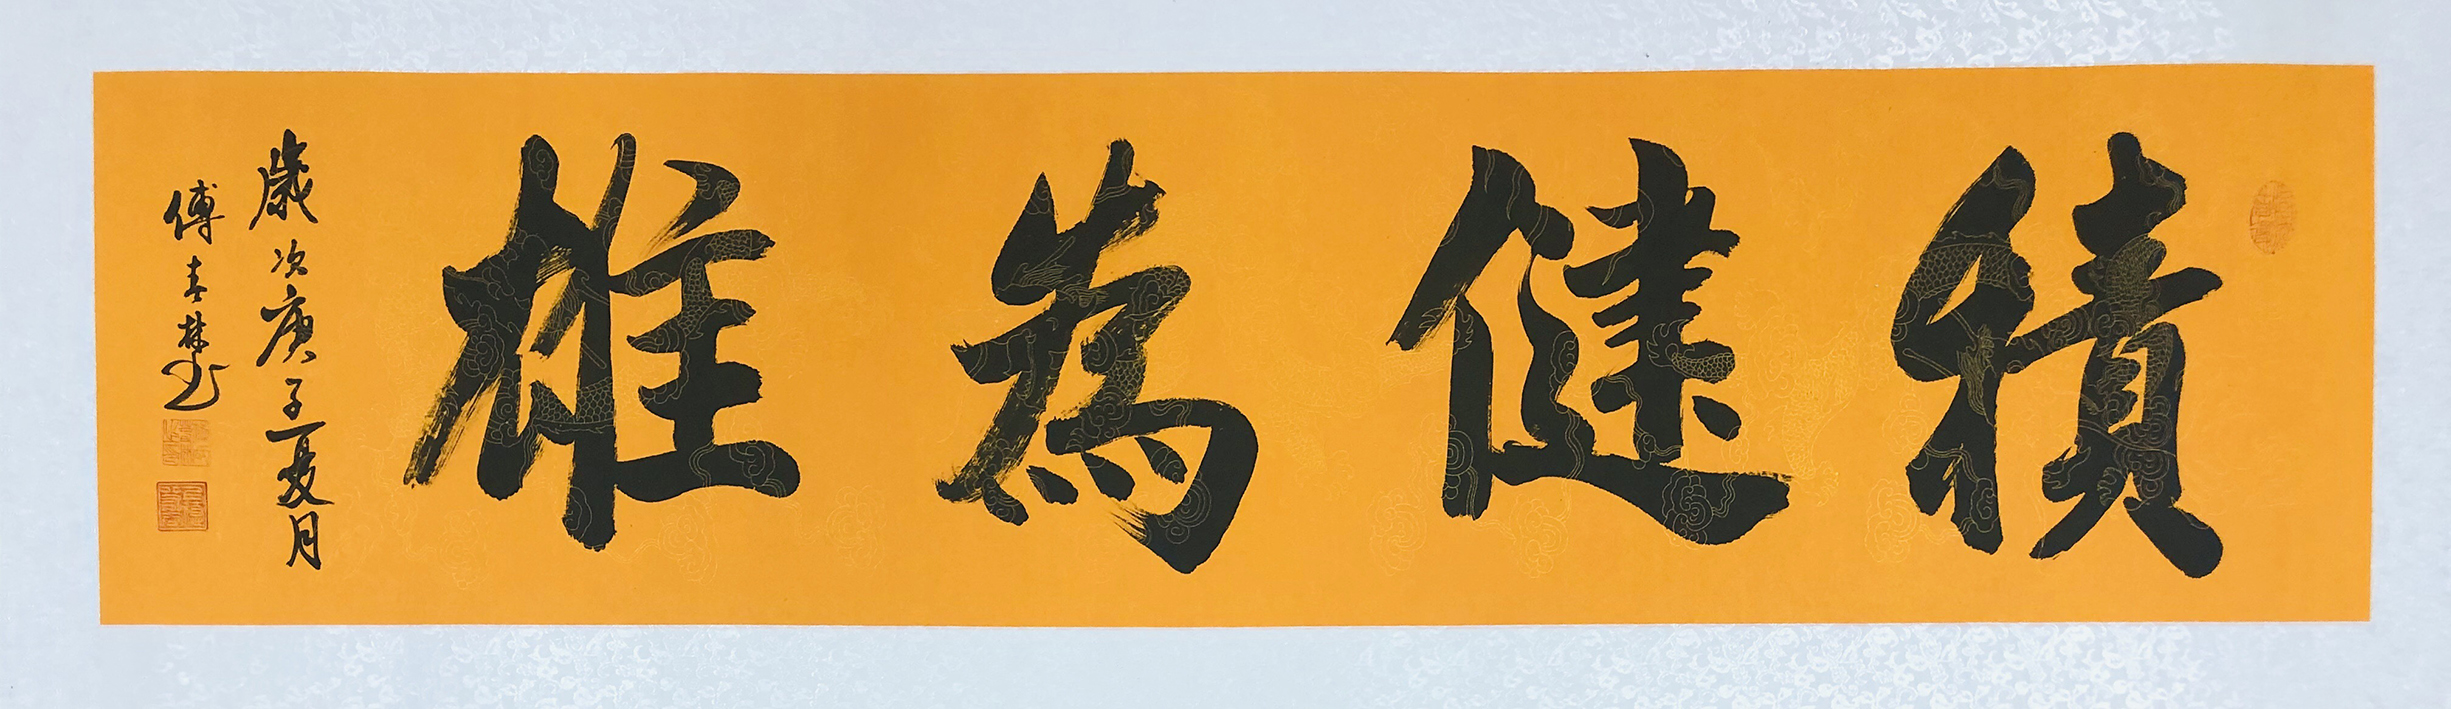 積健為雄
歲次庚子夏月
傅春林书